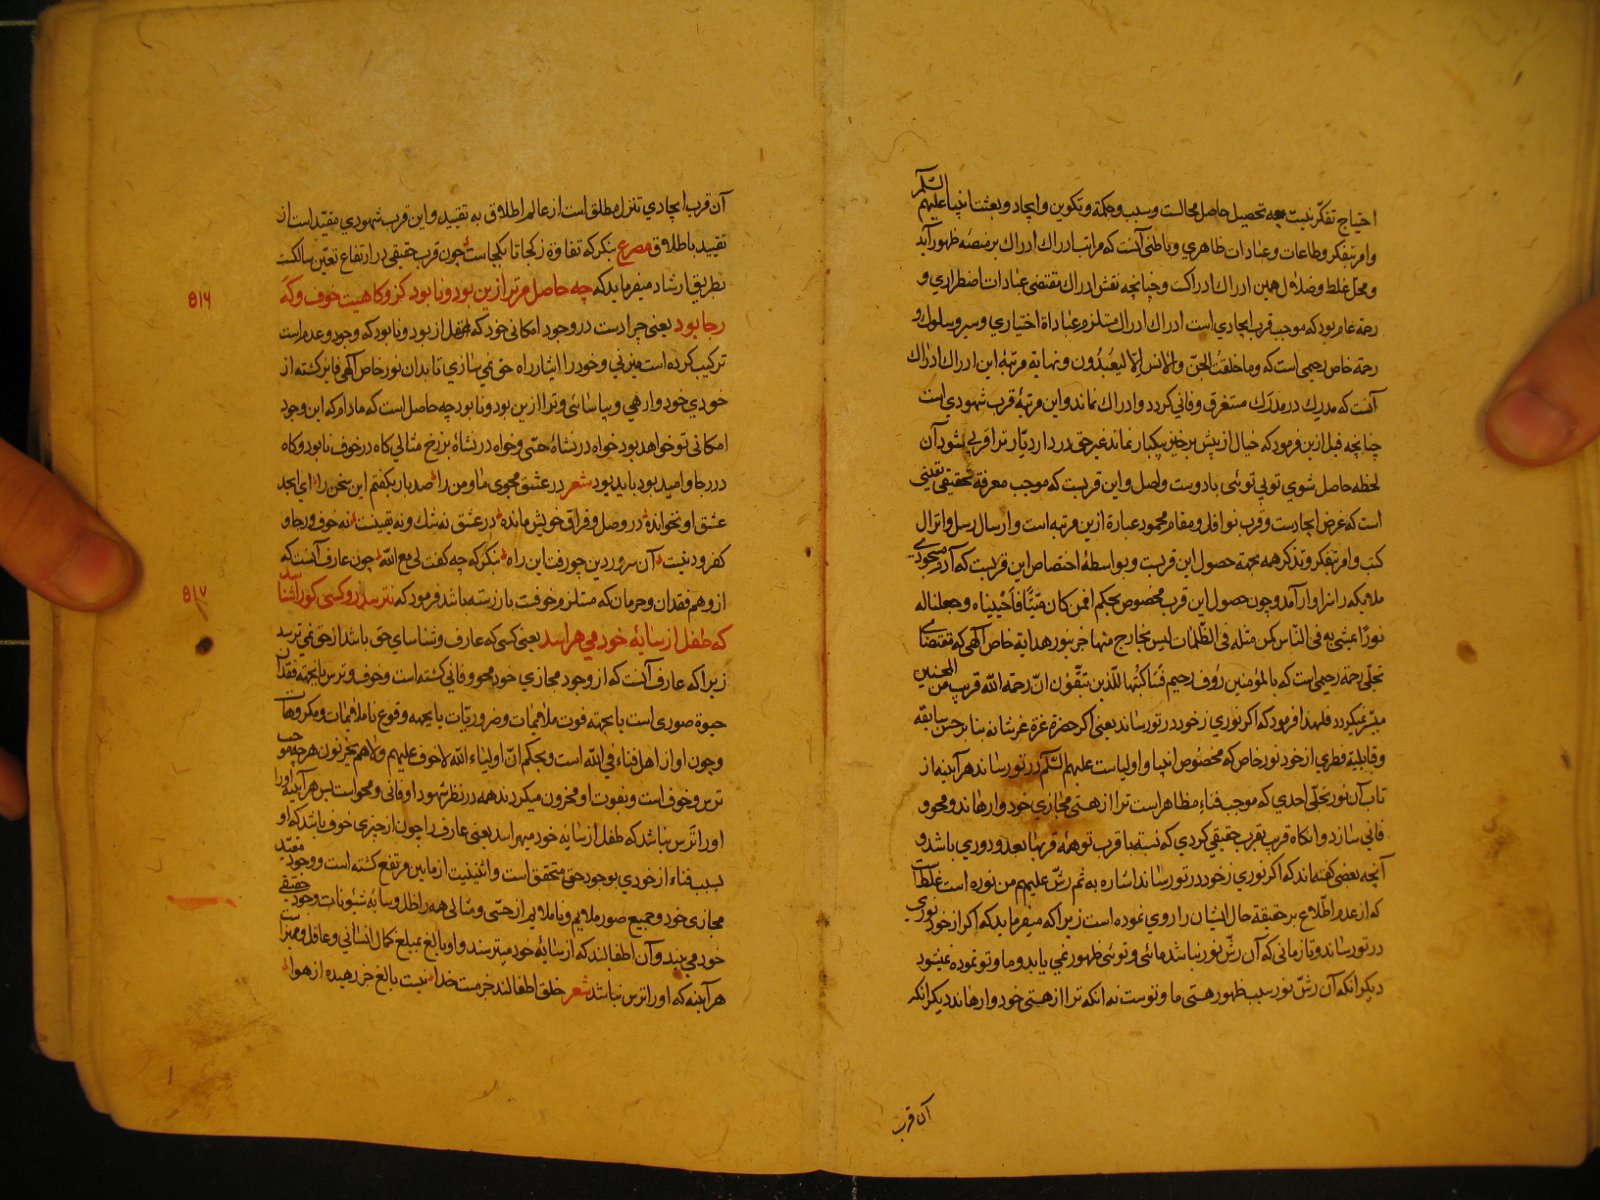 احتیاج تفکر نیست چه تحصیل حاصل محالست و سبب و حکمة و تکوین و ایجاد و بعثت انبیا علیهم السّلم
و امر بتفکر و طاعات و عبادات ظاهری و باطنی آنست که مراتب ادراك ادراك بر منصّه ظهور آید
و محل غلط و ضلال همین ادراك ادراکست و چنانچه نفس ادراك مقتضی عبادات اضطراری و
رحمة عام بود که موجب قرب ایجادی است ادراك ادراك مستلزم عباداة اختیاری و سیر و سلوك و
رحمة خاص رحیمی است که و ما خلقت الجنّ والانس اِلّا لیعبُدُون و نهایة مرتبهٔ این ادراك ادراك
آنست که مدرِك در مدرَك مستغرق و فانی گردد و ادراك نماند و این مرتبهٔ قرب شهودی است
چنانچه قبل ازین فرمود که خیال از پیش برخیزد بیکبار نماند غیر حق در دار دیّار ترا قربی شود آن
لحظه حاصل شوی تو بی توئی با دوست واصل و این قربست که موجب معرفة حقیقی یقینی
است که غرض ایجادست و قرب نوافل و مقام محمود عبارة ازین مرتبه است و ارسال رسل و انزال
کتب و امر بتفکر و تذکر همه بجهة حصول این قربست و بواسطهٔ اختصاص این قربست که آدم مسجودی
ملایکه را سزاوار آمد و چون حصول این قرب مخصوص بحکم افمن کان میّتًا فاحییناه و جعلنا له
نورًا یمشی به فی النّاس کمن مثله فی الظّلمات لیس بخارج منها جز بنور هدایة خاص الهی که مقتضای
تجلّی رحمة رحیمی است که بالمؤمنین رؤف رحیم فساکتبها للّذین یتّقون انّ رحمة اللّه قریب من المحسنین
میسّر نمیگردد فلهذا فرمود که اگر نوری ز خود در تو رساند یعنی اگر حضرة عزة عزّ شانه بنابر حسن سابقه
و قابلیة فطری از خود نور خاص که مخصوص انبیا و اولیاست علیهم السّلم در تو رساند هر آینه از
تاب آن نور تجلّی احدی که موجب فناءِ مظاهر است ترا از هستی مجازی خود وارهاند و محو و
فانی سازد و انگاه قریب بقرب حقیقی گردی که نسبة با قرب تو همهٔ قربها بعد و دوری باشد و
آنچه بعضی گفته اند که اگر نوری ز خود در تو رساند اشاره به ثم رشّ علیهم من نوره است غلط است
که از عدم اطّلاع بر حقیقة حال ایشان را روی نموده است زیرا که میفرماید که اگر از خود نوری
در تو رساند و تا زمانی که آن رشّ نور نباشد مائی و توئی ظهور نمی یابد و ما و تو نموده نمیشود
دیگر انکه آن رشّ نور سبب ظهور هستی ما و توست نه انکه ترا از هستی خود وارهاند دیگر انکه
آن قرب
آن قرب ایجادی تنزل مطلق است از عالم اطلاق به تقیید و این قرب شهودی مقیّد است از
تقیید باطلاق مصرع بنگر که تفاوة ز کجا تا بکجاست چون قرب حقیقی در ارتفاع تعیّن سالکست
بطریق ارشاد میفرماید که چه حاصل مر ترا زین بود و نابود کزو کاهیت خوف و که
رجا بود یعنی چرا دست در وجود امکانی خود که از بود و نابود که وجود و عدم است
ترکیب کرده است میزنی و خود را ایثار راه حق نمی سازی تا بدان نور خاص الهی فایز گشته از
خودی خود وارهی و بیاسائی و ترا ازین بود و نابود چه حاصل است که مادام که این وجود
امکانی تو خواهد بود خواه در نشاهٔ حسّی و خواه در نشاهٔ برزخ مثالی گاه در خوف نابود و گاه
در رجا و امید بود باید بود شعر در عشق مجوی ما و من را صد بار بگفتم این سخن را ای ابجد
عشق او نخوانده در وصل و فراق خویش مانده در عشق نه شك و نه یقینست نه خوف و رجا و
کفر و دینست آن سرور دین چو رفت این راه بنگر که چه گفت لی مع اللّه چون عارف آنست که
از وهم فقدان و حرمان که مستلزم خوفست باز رسته باشد فرمود که نترسد زو کسی کو را شناسد
که طفل از سایهٔ خود می هراسد یعنی کسی که عارف و شناسای حق باشد از حق نمی ترسد
زیرا که عارف آنست که از وجود مجازی خود محو و فانی گشته است و خوف و ترس یا بجهة فقدان
حیوة صوری است یا بجهة فوت ملایمات و ضروریّات یا بجهه وقوع ناملایمات و مکروهات
و چون او از اهل فناء فی اللّه است و بحکم انّ اولیاء اللّه لا خوف علیهم ولا هم یحزنون هرچه موجب
ترس و خوف است و بفوت او محزون میگردند همه در نظر شهود او فانی و محواست پس هرآینه او را
او را ترس نباشد که طفل از سایهٔ خود میهراسد یعنی عارف را چون از چیزی خوف باشد که او
بسبب فناء از خودی بوجود حق متحقق است و اثنینیت از مابین مرتفع گشته است و وجود مقیّد
مجازی خود و جمیع صور ملایم و ناملایم از حسّی و مثالی همه را ظل و سایهٔ شئونات وجود حقیقی
خود می بیند و آن اطفالند که از سایهٔ خود میترسند و او بالغ بمبلغ کمال انسانی و عاقل و ممیّز است
هرآینه که او را ترس نباشد شعر خلق اطفالند جز مست خدا نیست بالغ جز رهیده از هوا
۵۱۶
۵۱۷